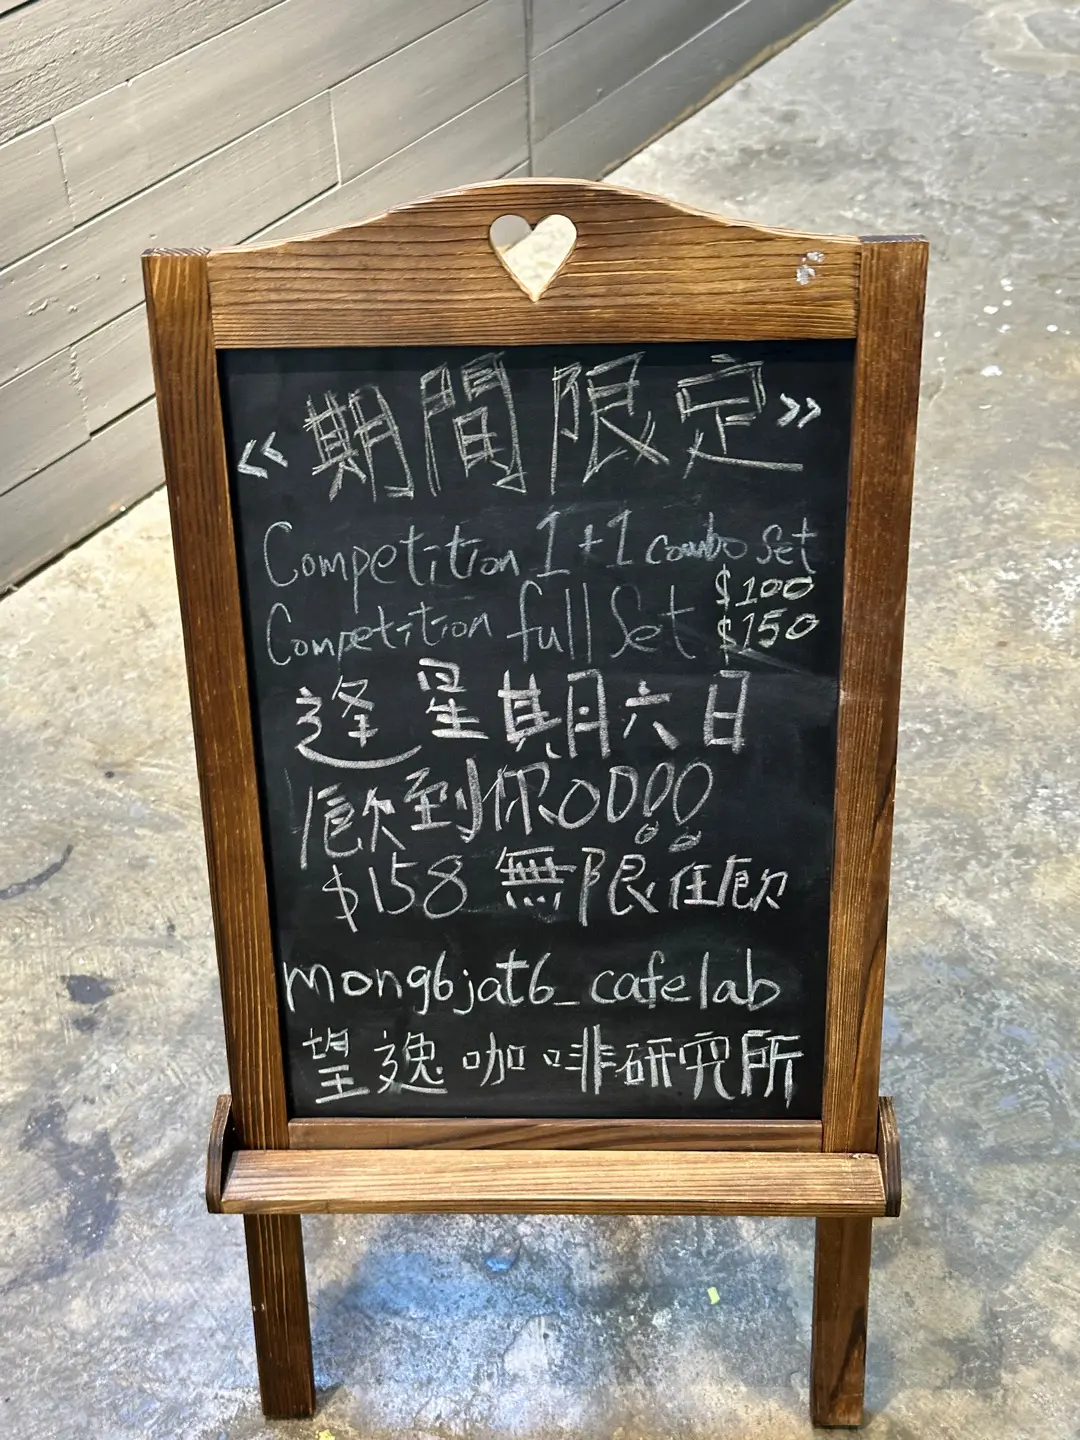 《期間限定》
Competition 1+1 combo Set $100
Competition full Set $150
逢星期六日
飲到你OO!!
$158 無限任飲
mong6jat6_cafelab
望逸咖啡研究所